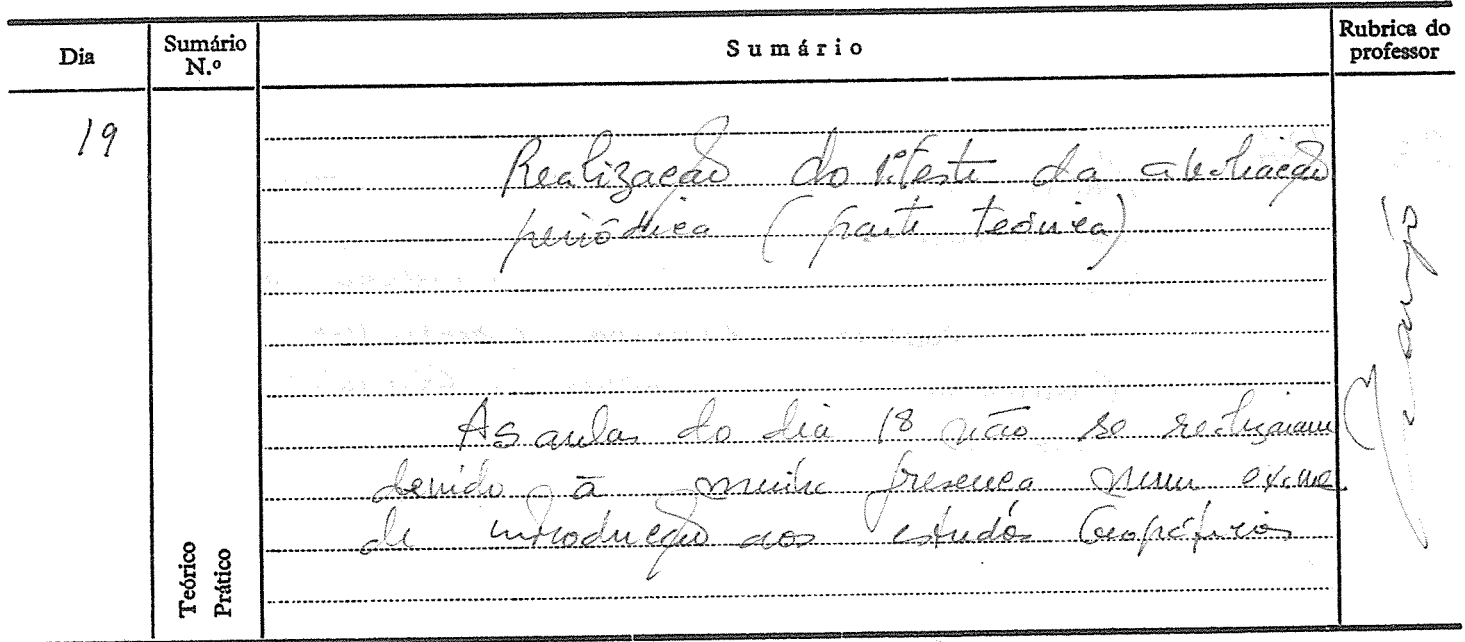 Dia
Sumário
N.º
Sumário
Rubrica do
professor
19
Realização do 1º teste da avaliação
periódica (parte teórica)
As aulas do dia 18 não se realizaram
devido à minha presença num exame
de introdução aos estudos Geográficos
Teórico
Prático